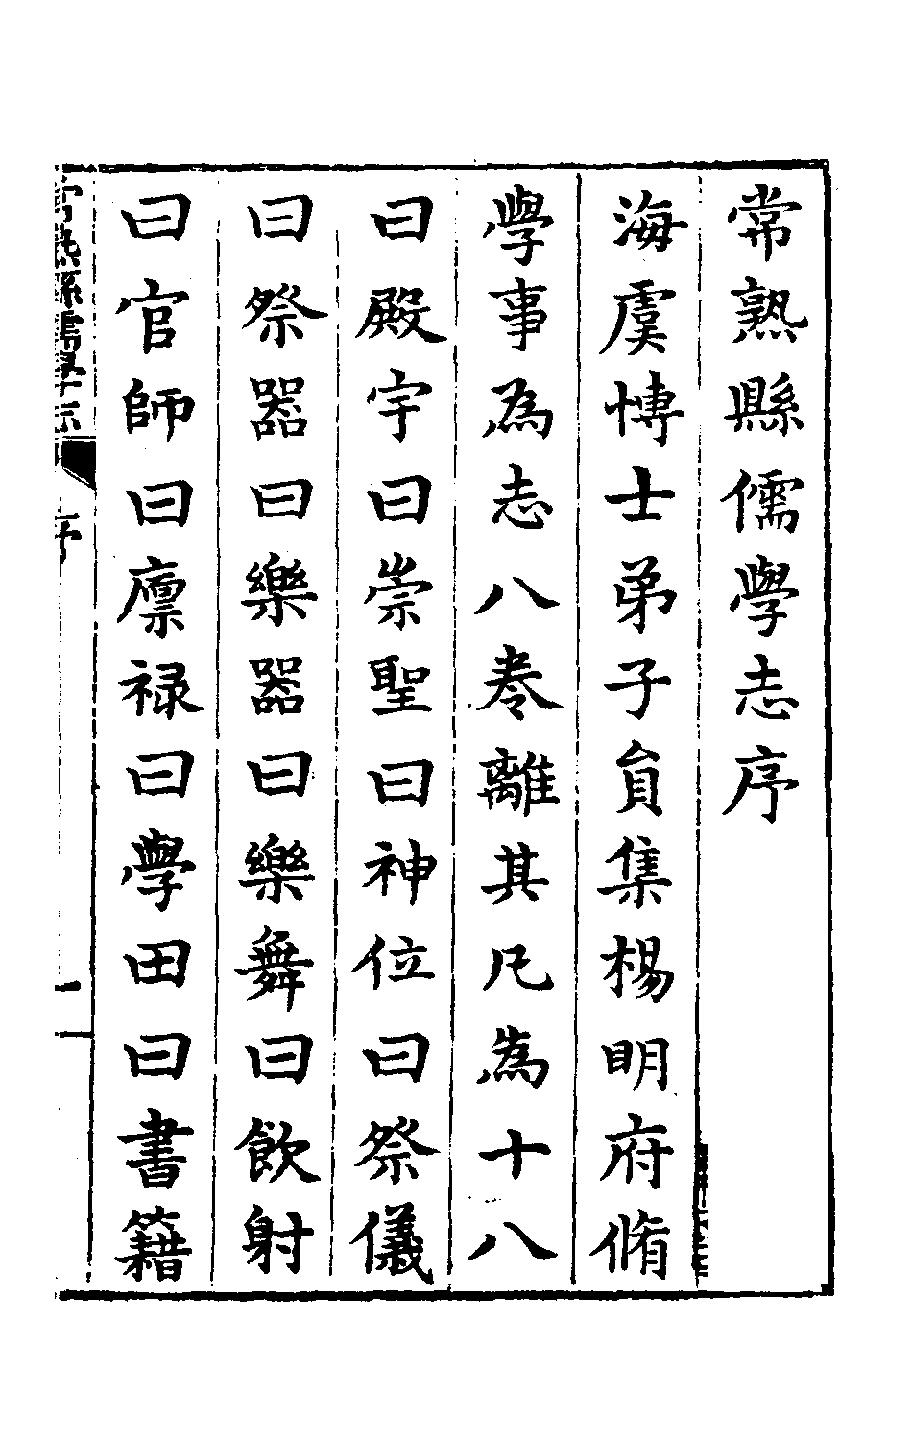 常熟縣儒學志序
海虞博士弟子員集楊明府脩
學事為志八卷離其凡為十八
曰殿宇曰崇聖曰神位曰祭儀
曰祭器曰樂器曰樂舞曰飲射
曰官師曰廩祿曰學田曰書籍
常熟縣儒學志 序 一